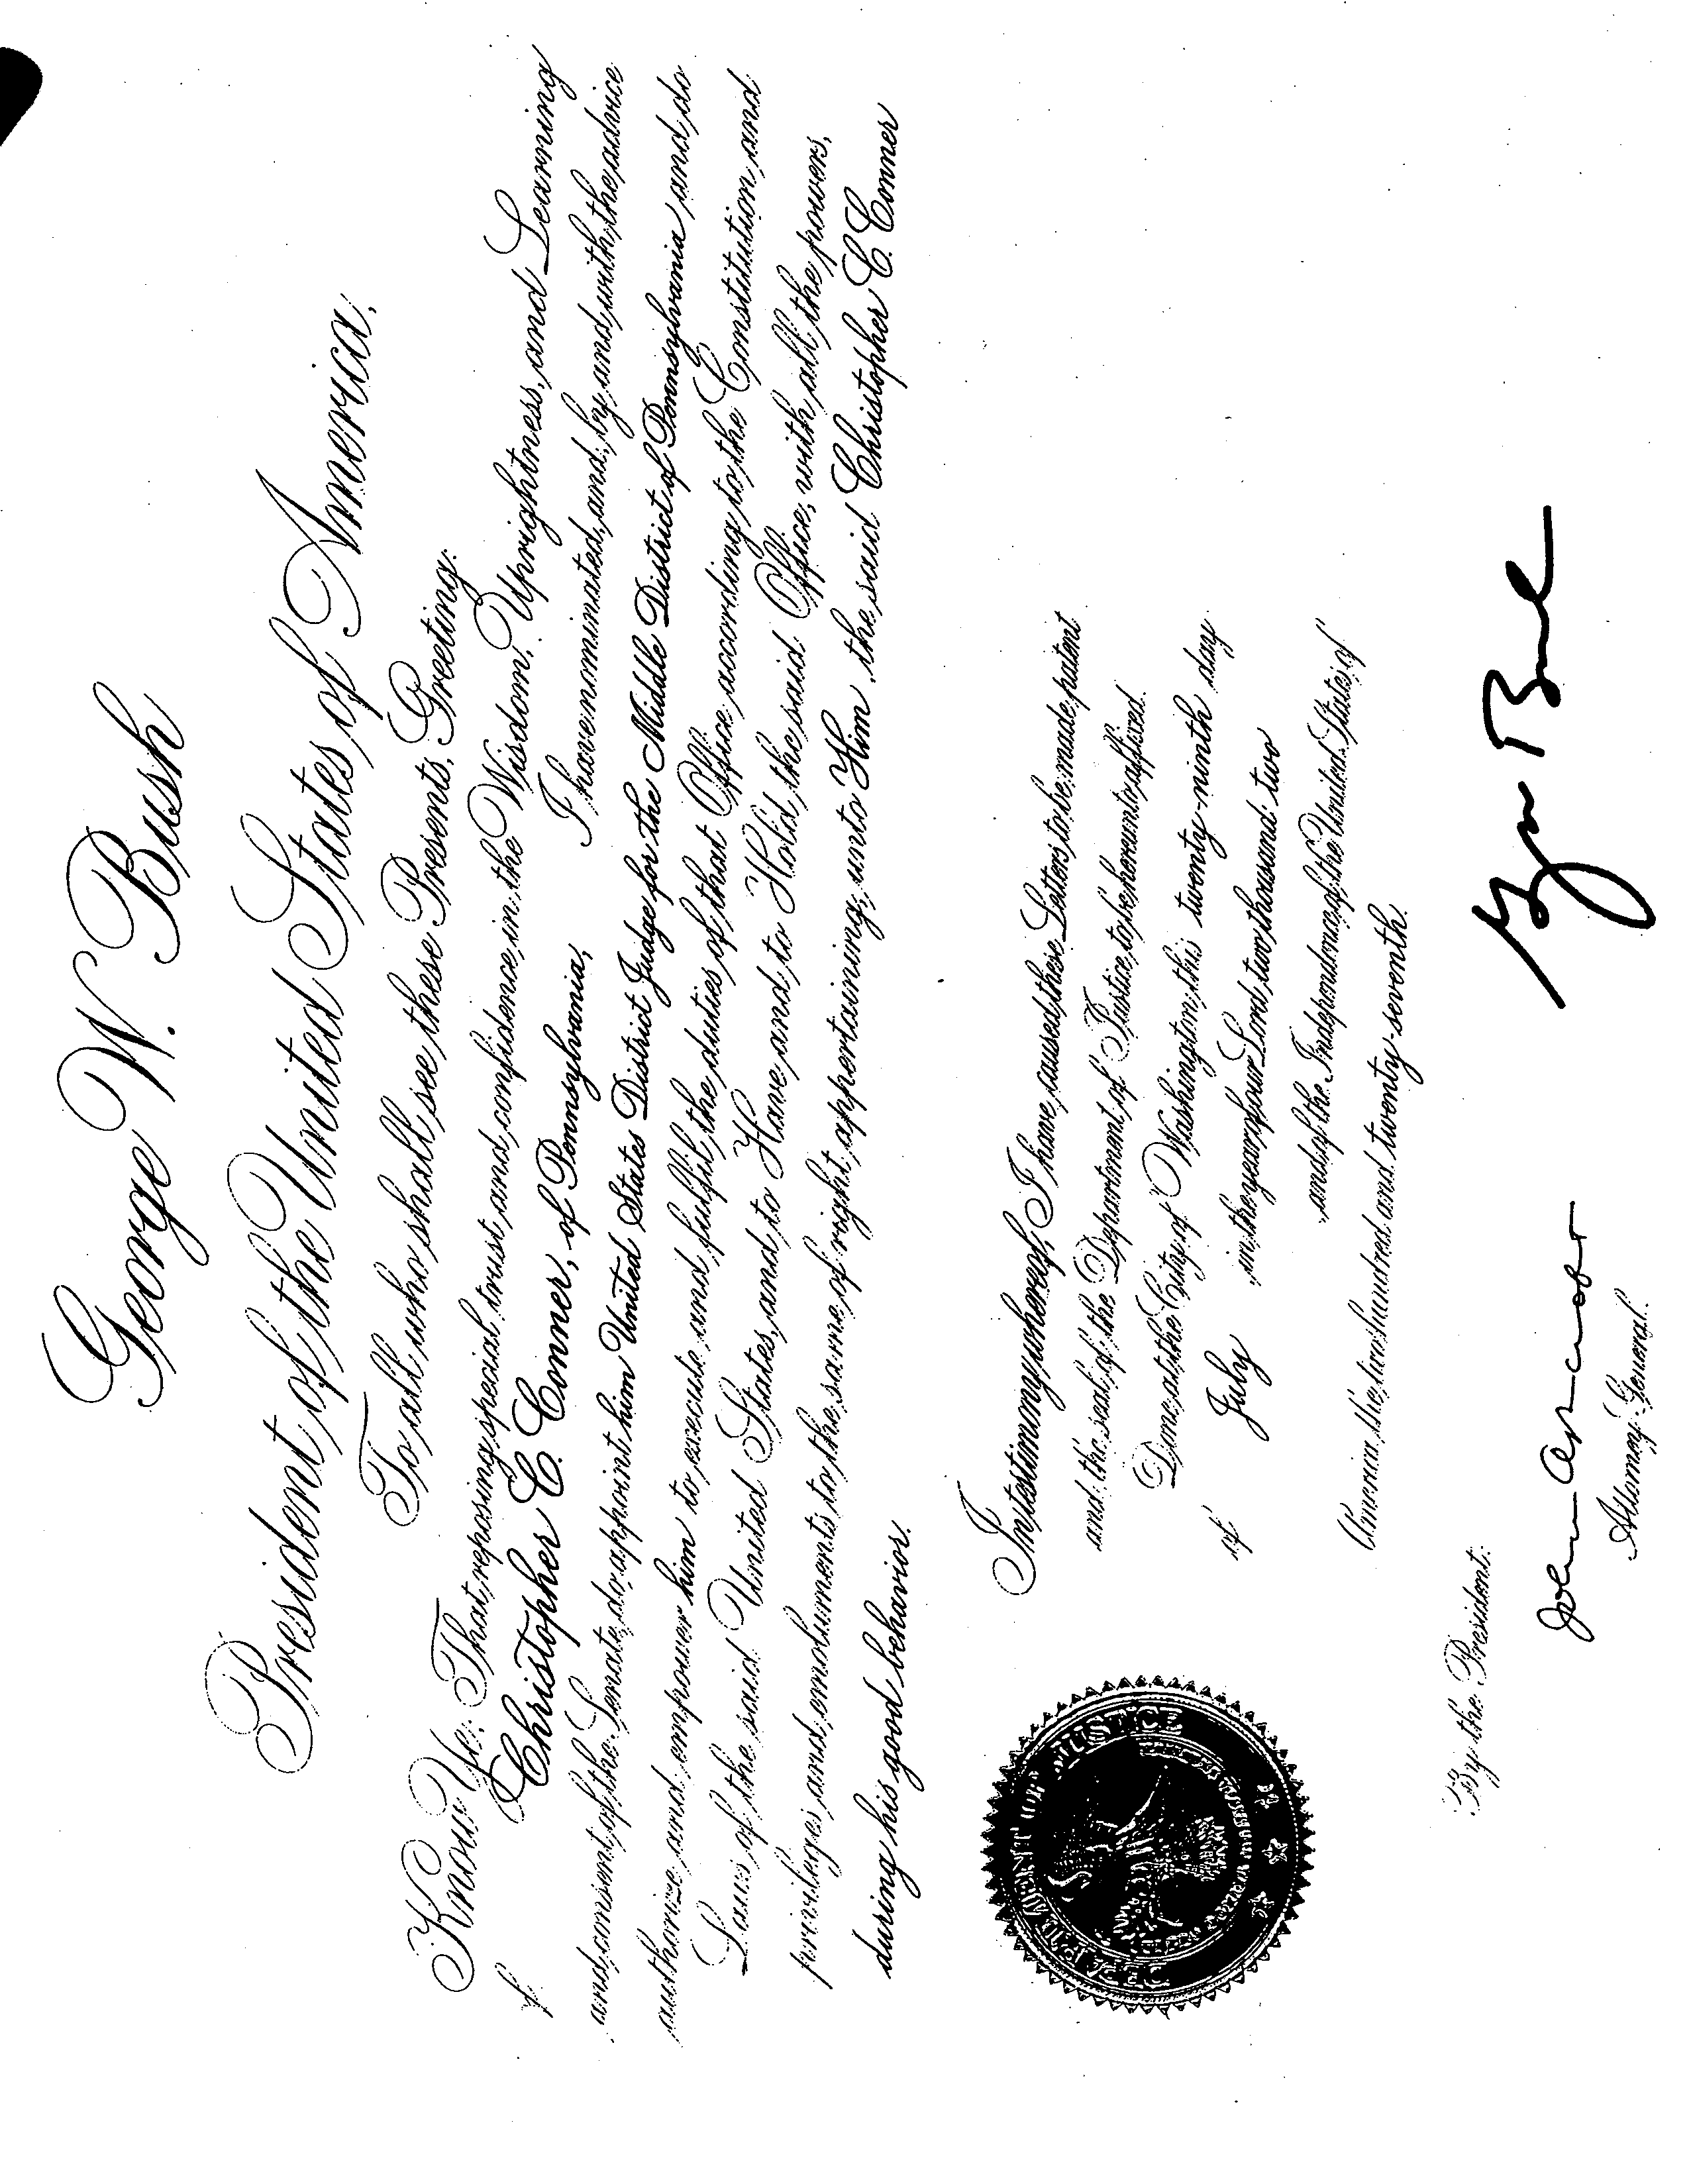 George W. Bush
President of the United States of America,
To all who shall see these Presents, Greeting:
Know Ye: That reposing special trust and confidence in the Wisdom, Uprightness, and Learning
of Christopher C. Conner, of Pennsylvania, I have nominated, and, by and with the advice
and consent of the Senate, do appoint him United States District Judge for the Middle District of Pennsylvania and do
authorize and empower him to execute and fulfil the duties of that Office according to the Constitution and
Laws of the said United States, and to Have and to Hold the said Office, with all the powers,
privileges and emoluments to the same of right appertaining, unto Him the said Christopher C. Conner
during his good behavior.
In testimony whereof, I have caused these Letters to be made patent
and the seal of the Department of Justice to be hereunto affixed.
Done at the City of Washington this twenty-ninth day
of July in the year of our Lord two thousand two
and of the Independence of the United States of
America the two hundred and twenty-seventh.
DEPARTMENT OF JUSTICE
By the President:
John Ashcroft
Attorney General.